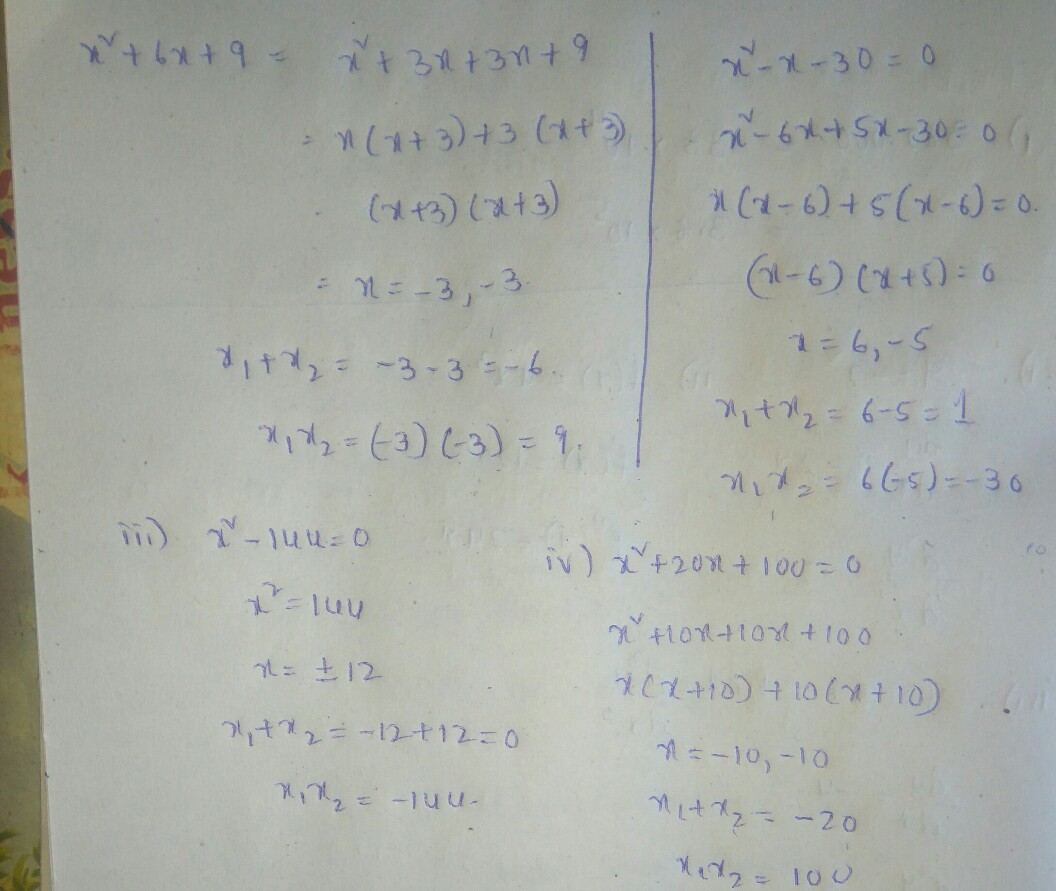 x² + 6x + 9 = x² + 3x + 3x + 9
= x(x+3) + 3 (x+3)
(x+3) (x+3)
= x = -3, -3.
x₁ + x₂ = -3 - 3 = -6.
x₁x₂ = (-3) (-3) = 9.
x² - x - 30 = 0
x² - 6x + 5x - 30 = 0
x(x-6) + 5(x-6) = 0.
(x-6) (x+5) = 0
x = 6, -5
x₁ + x₂ = 6-5 = 1
x₁x₂ = 6(-5) = -30
iii) x² - 144 = 0
x² = 144
x = ± 12
x₁ + x₂ = -12 + 12 = 0
x₁x₂ = -144.
iv) x² + 20x + 100 = 0
x² + 10x + 10x + 100
x(x+10) + 10(x+10)
x = -10, -10
x₁ + x₂ = -20
x₁x₂ = 100